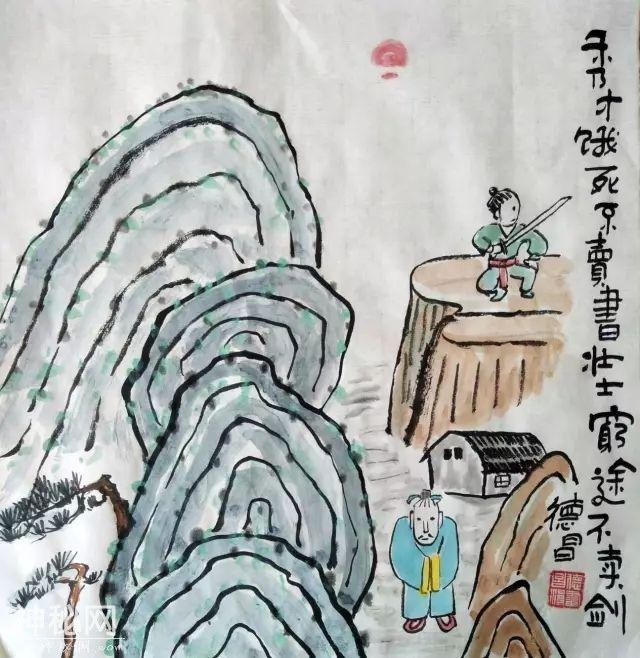 秀才饿死不賣書壮士窮途不卖剑
德昌
神秘网